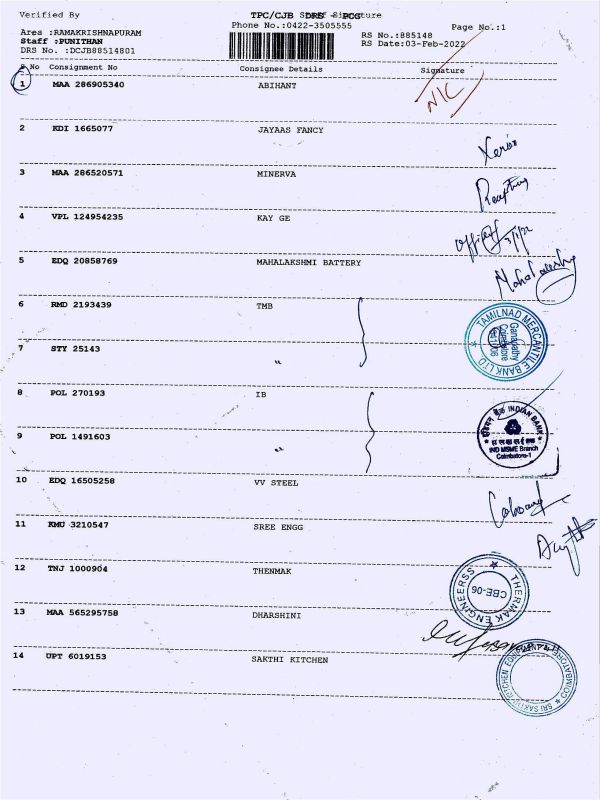 Verified By TPC/CJB DRS - POS Staff Signature
Phone No.:0422-3505555 Page No.:1
Area :RAMAKRISHNAPURAM RS No.:885148
Staff :PUNITHAN RS Date:03-Feb-2022
DRS No. :DCJB88514801
S No Consignment No Consignee Details Signature
1 MAA 286905340 ABIHANT N/C
2 KDI 1665077 JAYAAS FANCY
Xerox
3 MAA 286520571 MINERVA
4 VPL 124954235 KAY GE
5 EDQ 20858769 MAHALAKSHMI BATTERY
6 RMD 2193439 TMB
TAMILNAD MERCANTILE BANK LTD
Ganapathy
Coimbatore
7 STY 25143 "
8 POL 270193 IB
INDIAN BANK
9 POL 1491603 "
IND MSME Branch
Coimbatore-1
10 EDQ 16505258 VV STEEL
11 KMU 3210547 SREE ENGG
12 TNJ 1000904 THENMAK
THERMAK ENGINEERSS
CBE-06
13 MAA 565295758 DHARSHINI
14 UPT 6019153 SAKTHI KITCHEN
SRI SAKTHI KITCHEN EQUIPMENT COIMBATORE